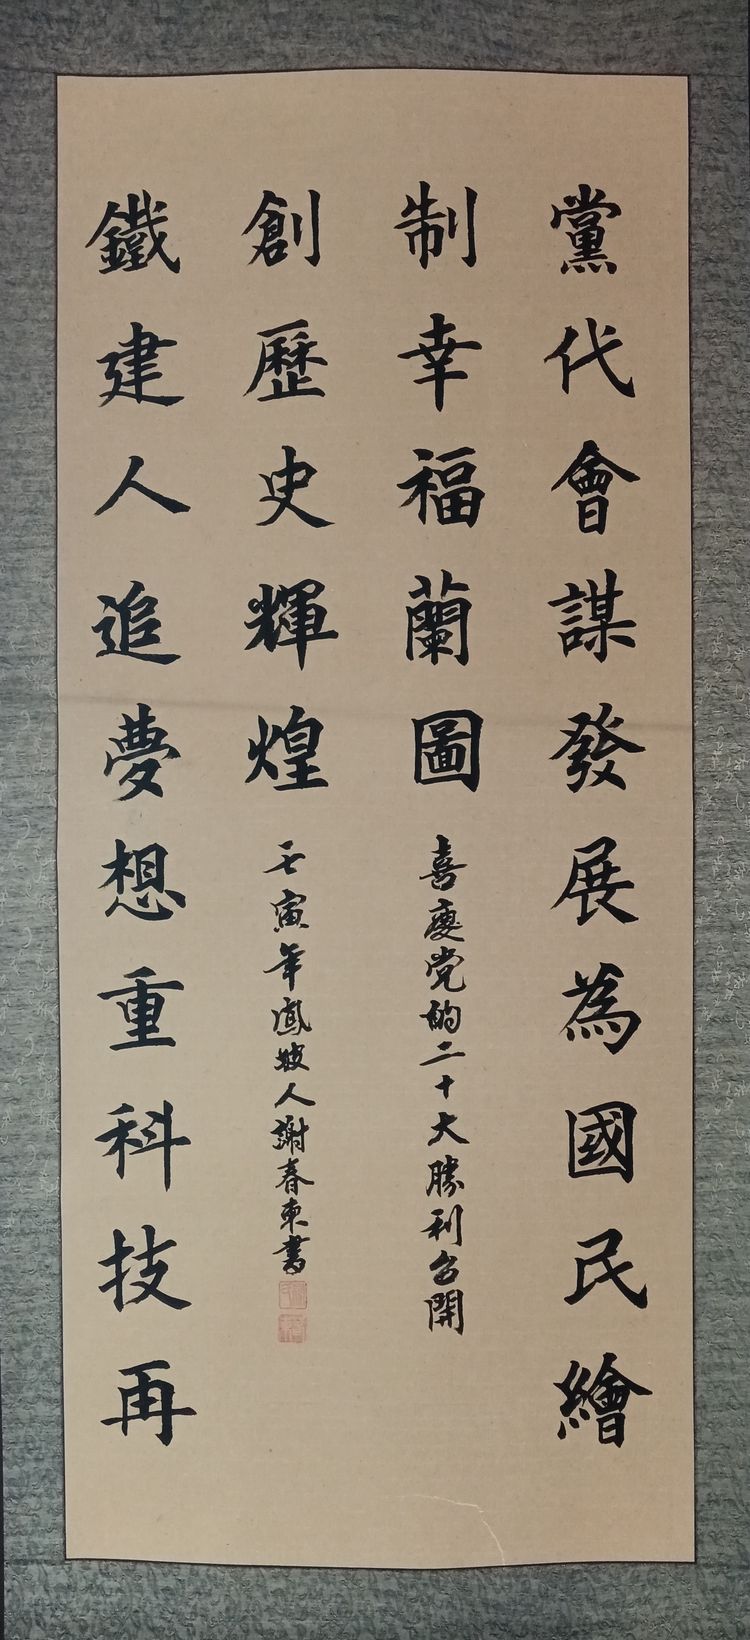 黨代會謀發展為國民繪
制幸福蘭圖
喜慶党的二十大勝利召開
鐵建人追夢想重科技再
創歷史輝煌
壬寅年鳳人謝春東書